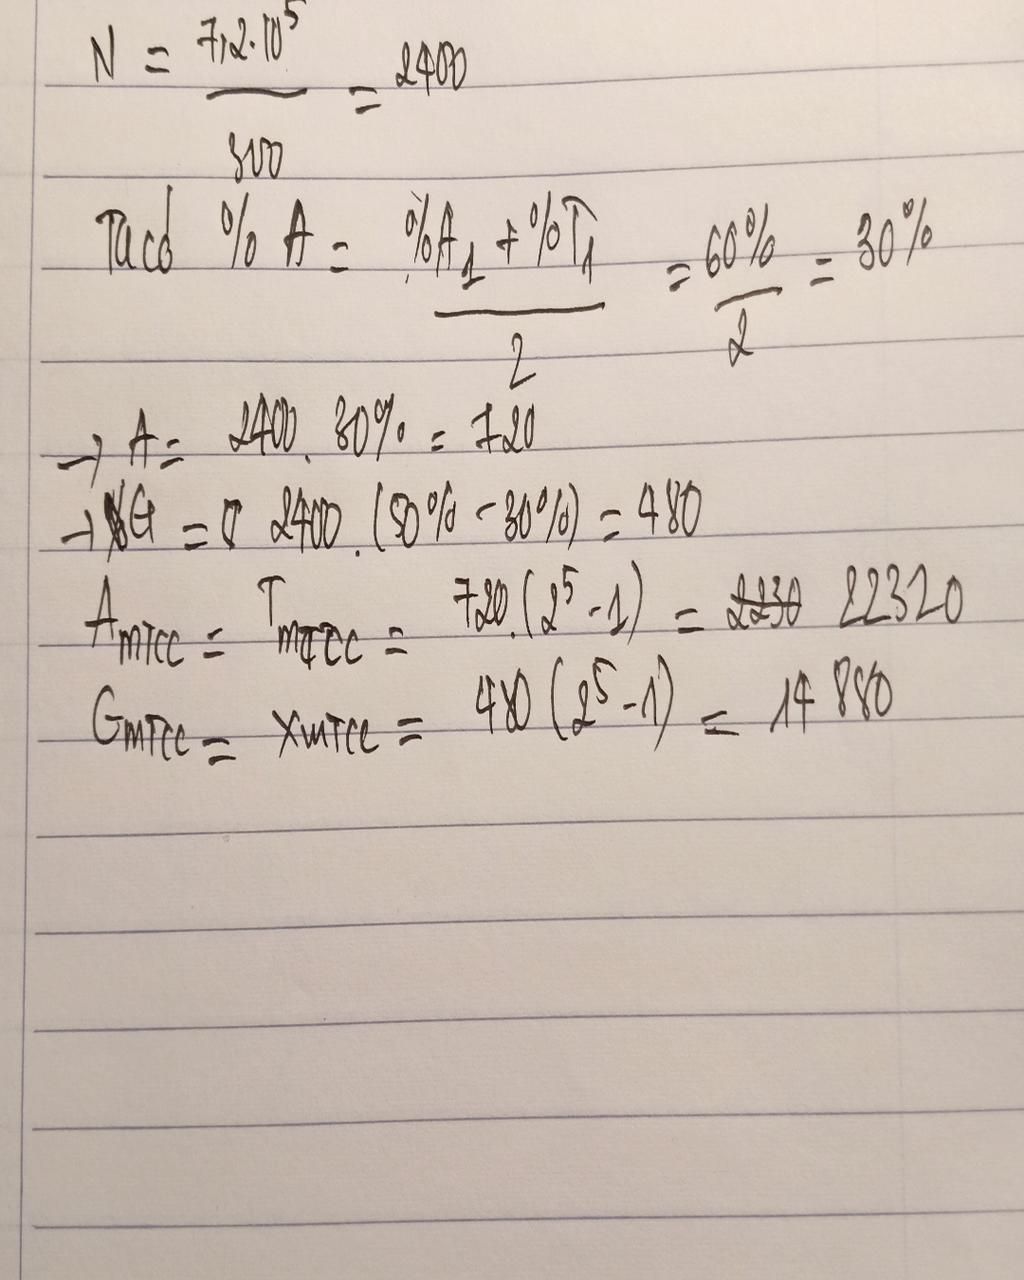 N = 7,2.10⁵ / 300 = 2400
Ta có % A = %A₁ + %T₁ / 2 = 60% / 2 = 30%
→ A = 2400. 30% = 720
→ G = 2400. (50% - 30%) = 480
Amtcc = Tmtcc = 720.(2⁵ - 1) = 2230 22320
Gmtcc = Xmtcc = 480 (2⁵ - 1) = 14 880